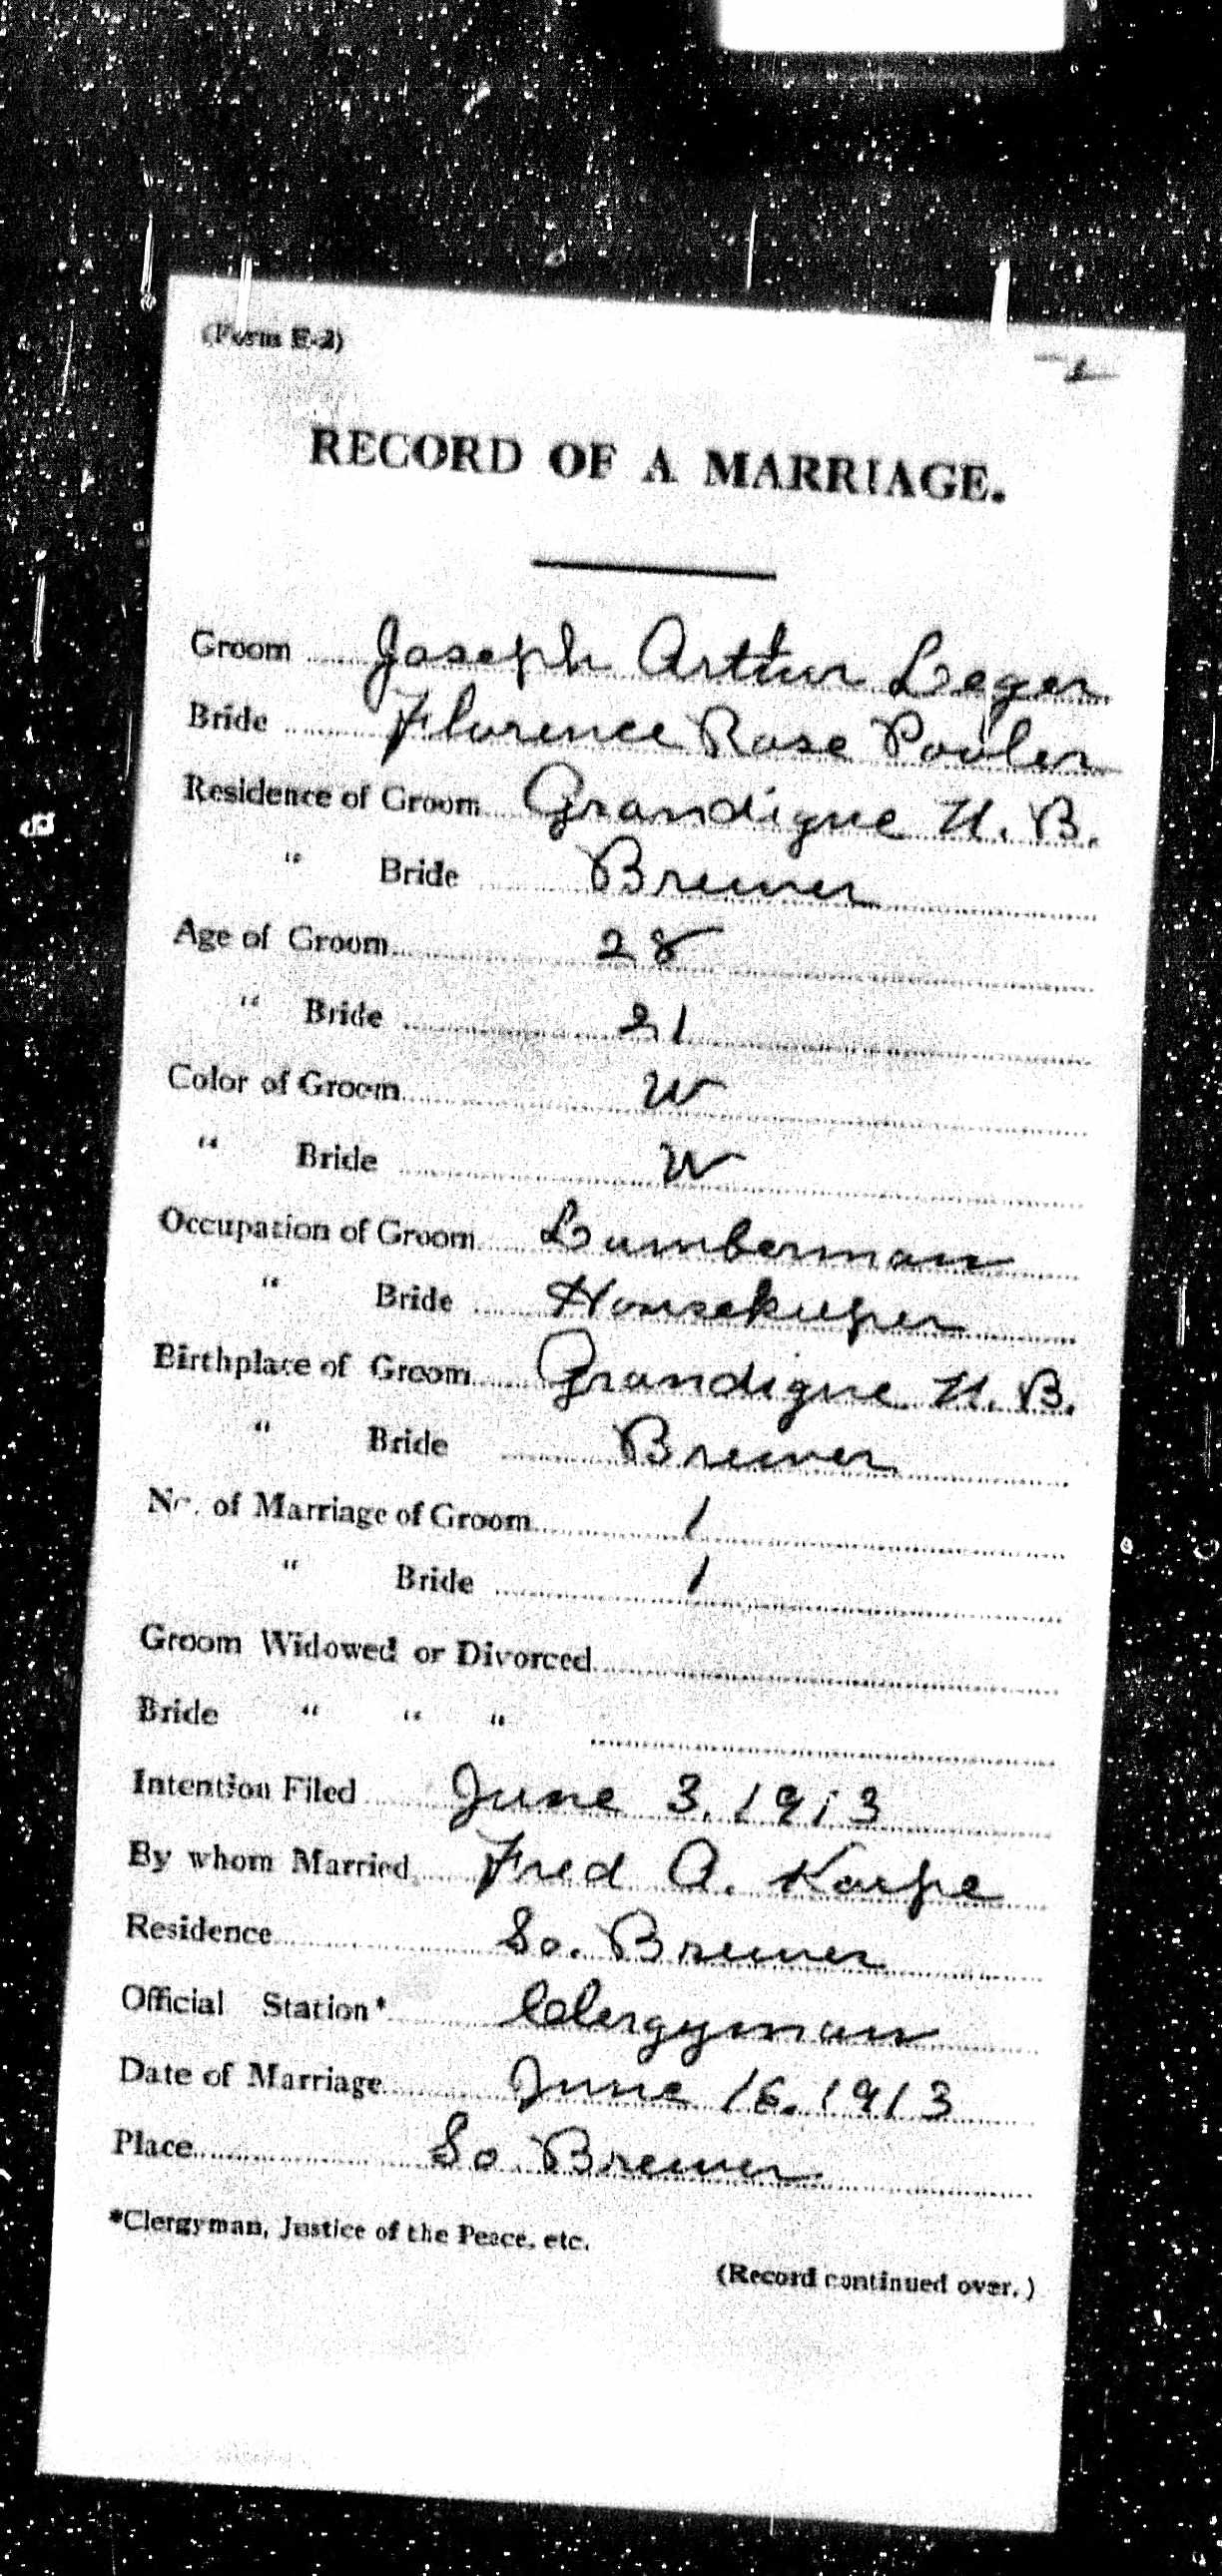 (Form E-2)
RECORD OF A MARRIAGE.
Groom Joseph Arthur Leger
Bride Florence Rose Pooler
Residence of Groom Grandigue N. B.
" Bride Brewer
Age of Groom 28
" Bride 21
Color of Groom W
" Bride W
Occupation of Groom Lumberman
" Bride Housekeeper
Birthplace of Groom Grandigue N. B.
" Bride Brewer
No. of Marriage of Groom 1
" Bride 1
Groom Widowed or Divorced
Bride " " "
Intention Filed June 3. 1913
By whom Married Fred A. Karpe
Residence So. Brewer
Official Station* Clergyman
Date of Marriage June 16. 1913
Place So Brewer
*Clergyman, Justice of the Peace, etc.
(Record continued over.)